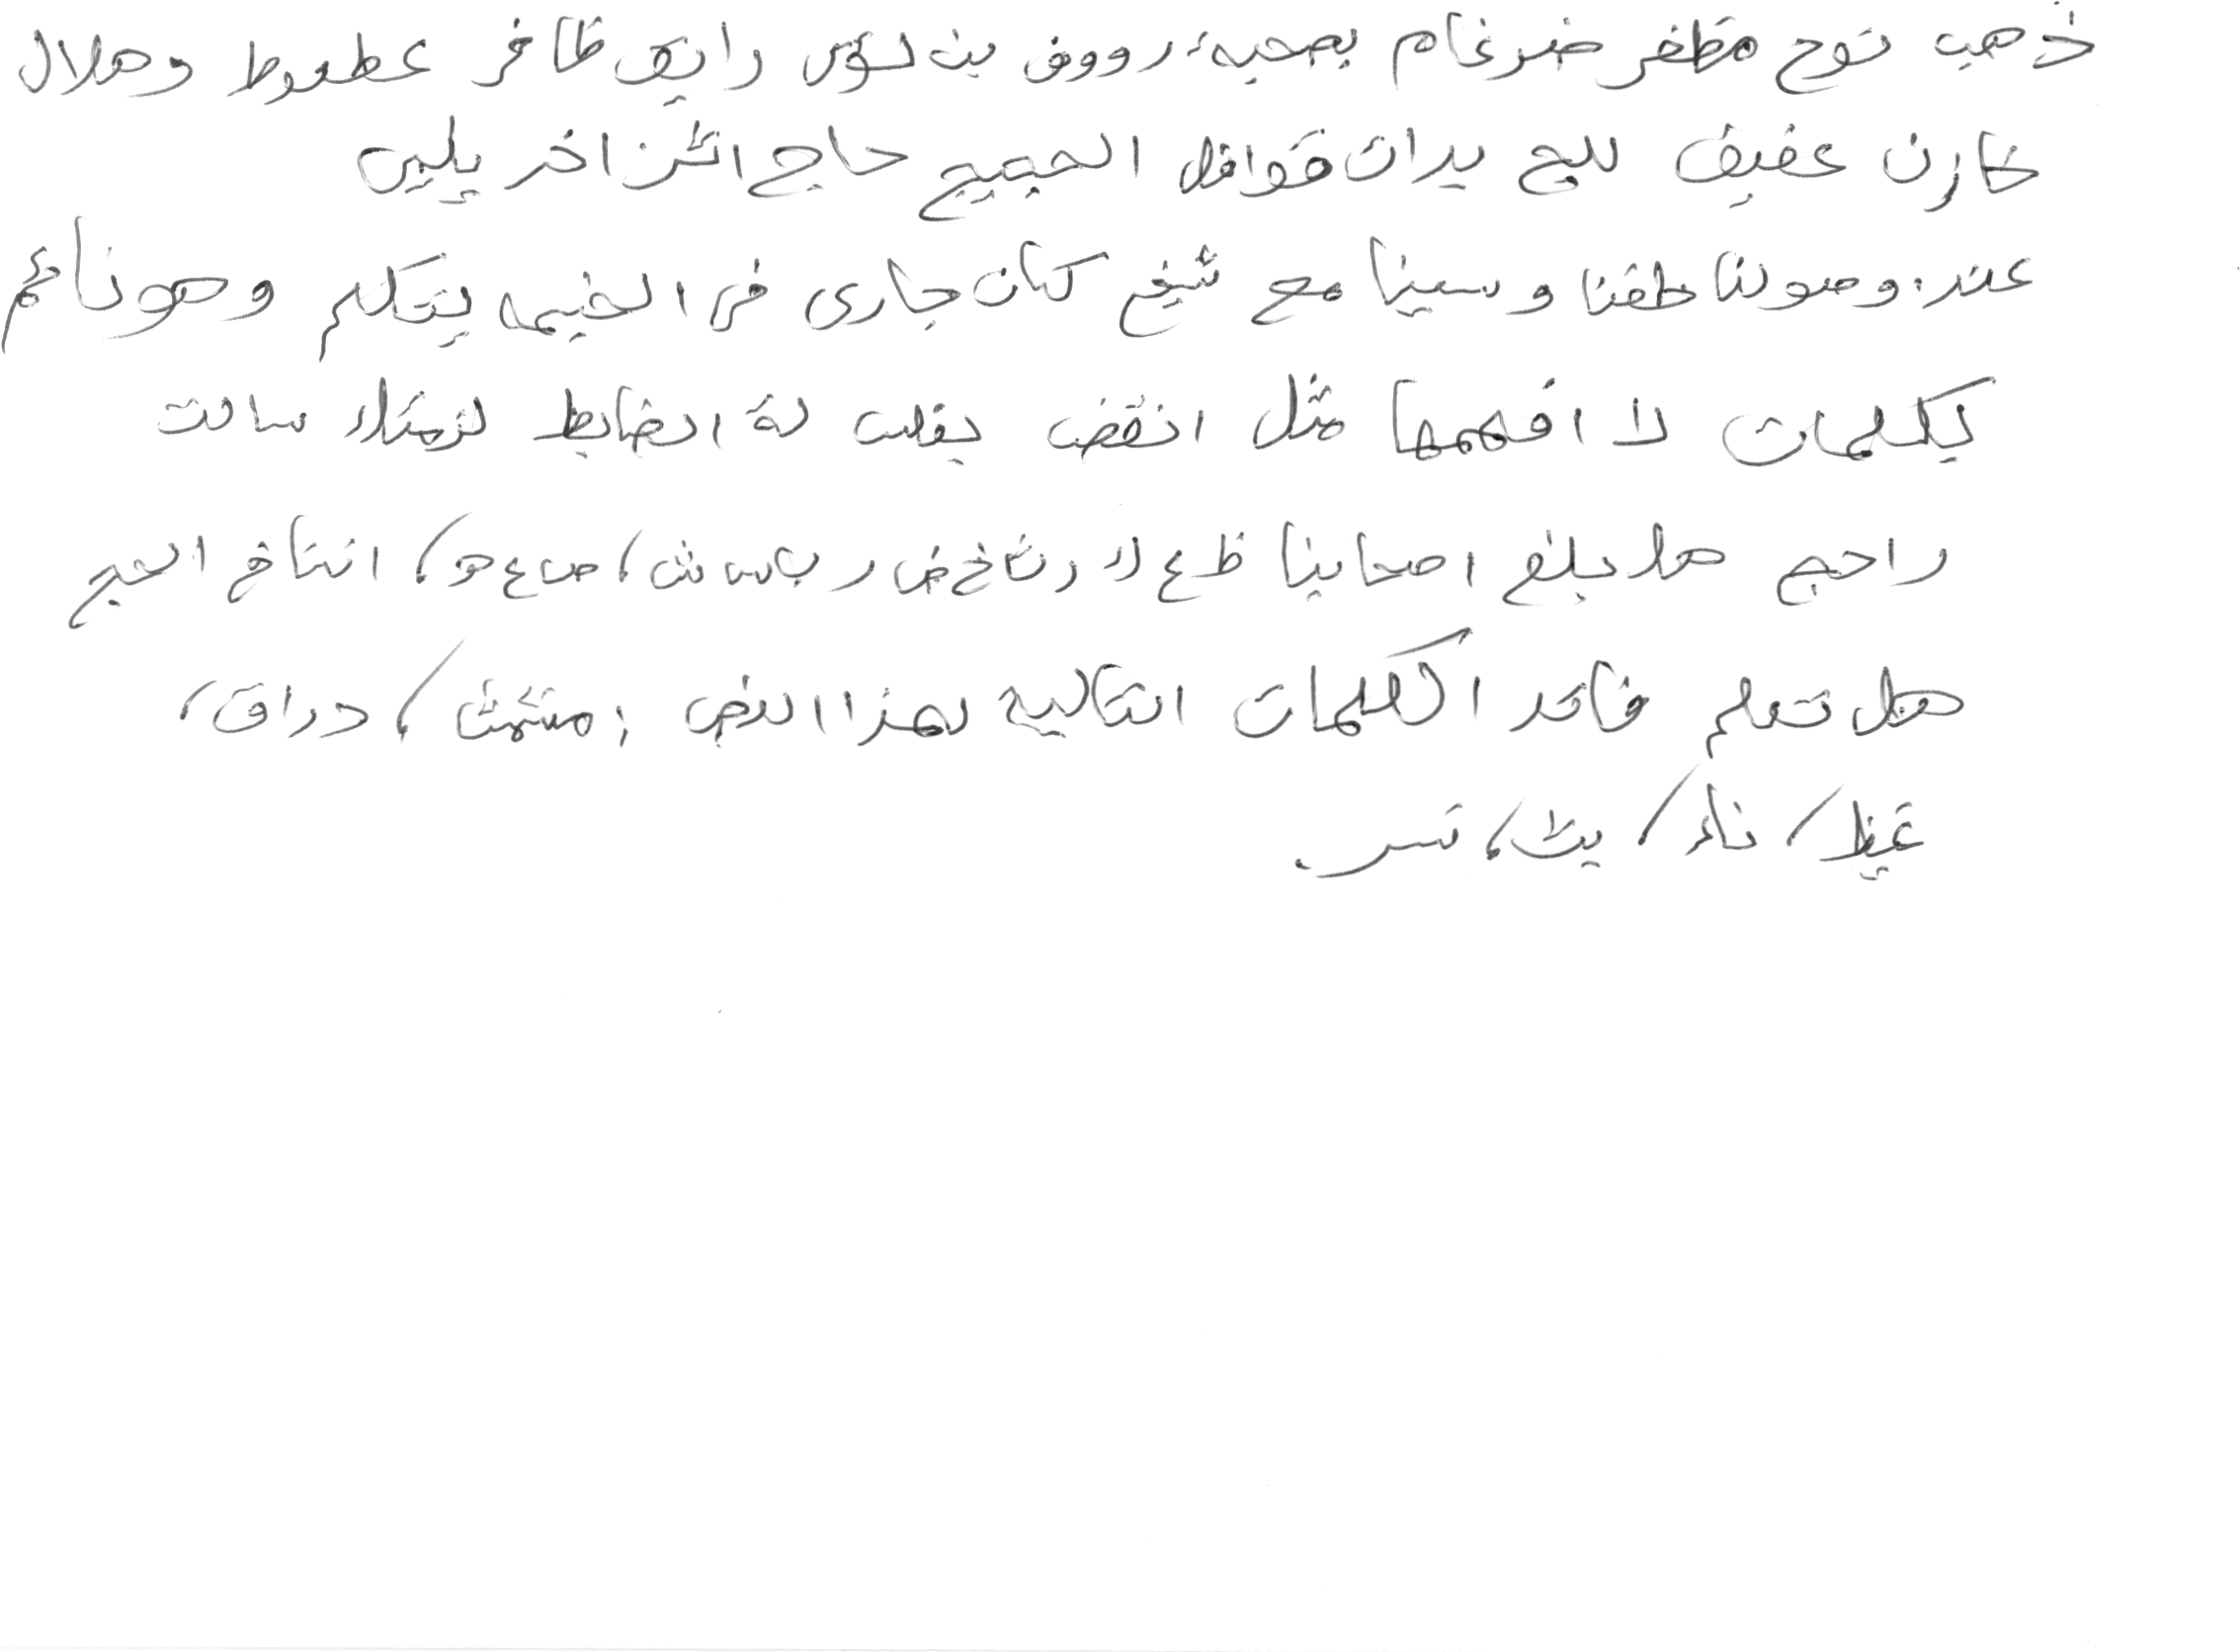 ذهب نوح مظفر ضرغام بصحبة رووف بن لؤى رايق ظافر عطعوط وهلال
خازن عفيف للج بدات قوافل الحجيج حاج اثر اخر يلبى
عند وصولنا طفنا وسعينا مع شيخ كان جارى فى الخيمه يتكلم وهو نائم
بكلمات لا افهمها مثل انقض بقلت لة الضابط سالت
راجح هل بلغ اصحابنا ظ ع لا ض ر ب س ش، ص ع هو، انتاج الحج
هل تعلم فائد الكلمات التالية لهذا النص : مشمش، دراق،
غيظ، ناء، بث، نسر